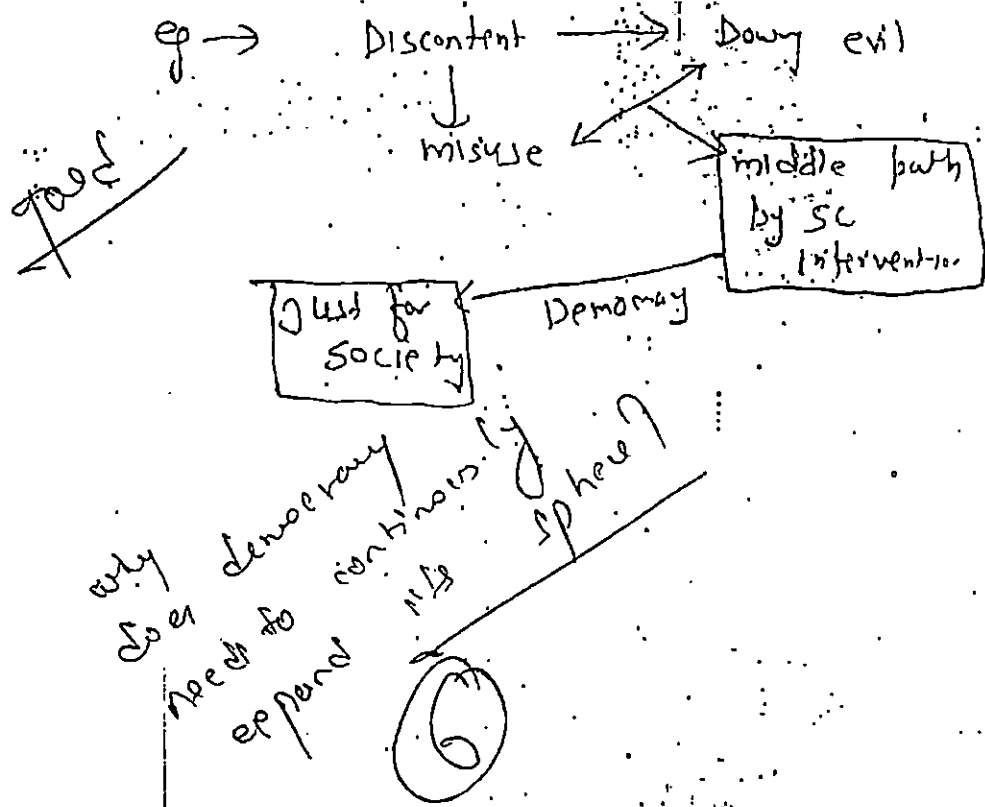 eg → Discontent → Dowry evil
misuse
middle path
by SC
intervention
Democracy
Just for
society
good
why
does democracy
need to continously
expand its sphere?
6